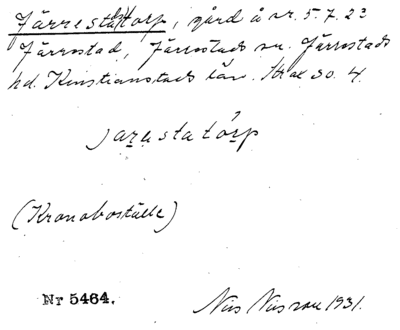 Järrestatorp, gård å nr. 5. 7. 23
Järrestad, Järrestads sn. Järrestads
hd. Kristianstads län. 4.
jaręstatǫrp
(Kronoboställe)
Nr 5464.
Nils 1931.